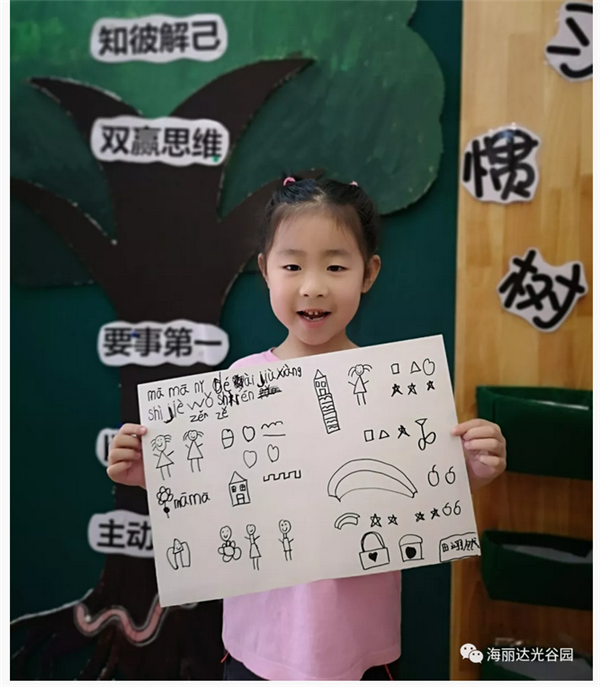 知彼解己
双赢思维
要事第一
主动
习
惯
树
mā mā nǐ dé ài jiù xàng
shì jiè wǒ shì rén
zěn zě
māma
海丽达光谷园